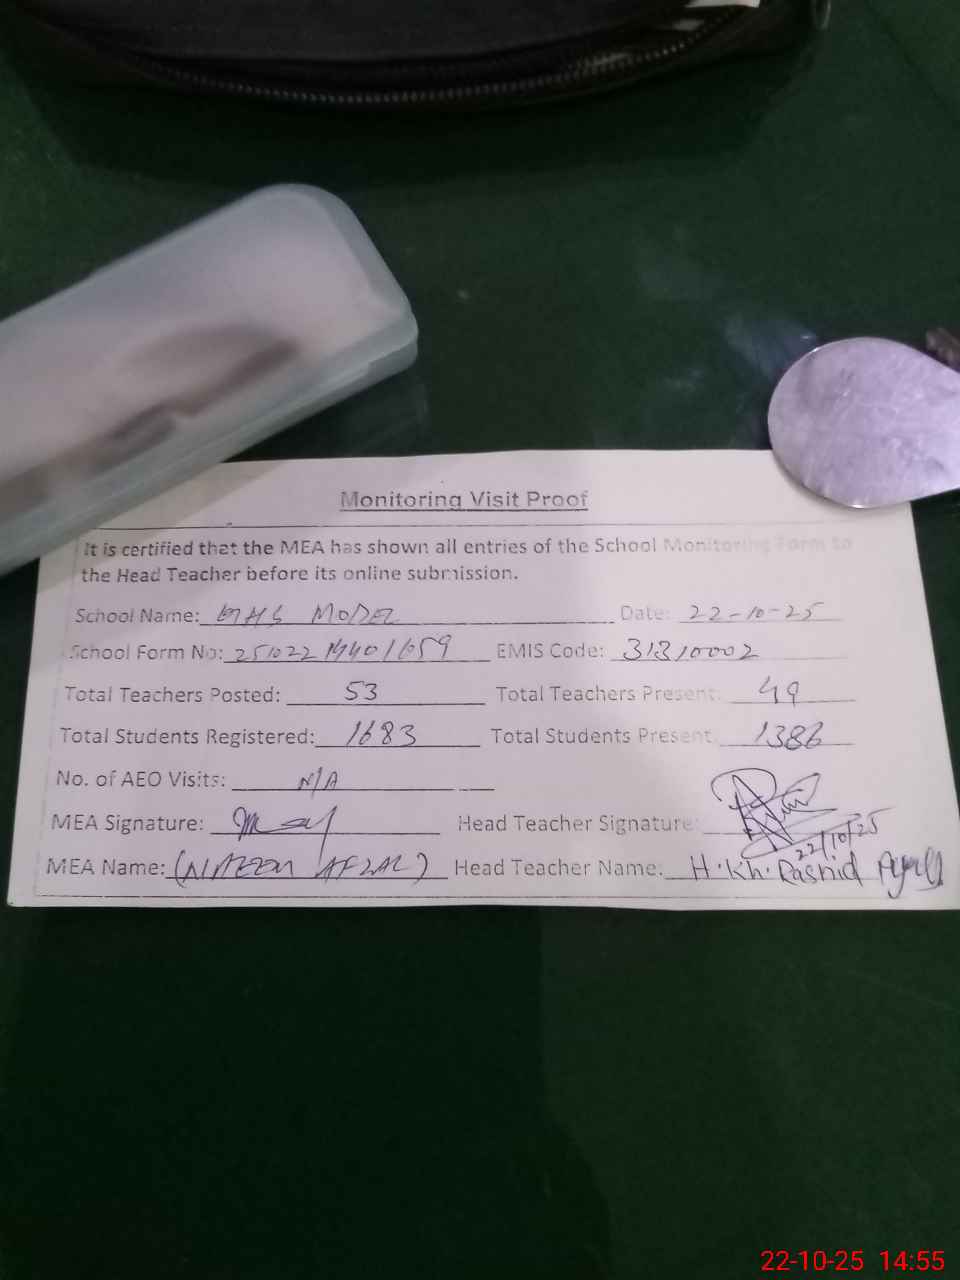 Monitoring Visit Proof
It is certified that the MEA has shown all entries of the School Monitoring Form to
the Head Teacher before its online submission.
School Name: GHS MODEL Date: 22-10-25
School Form No: EMIS Code: 31310002
Total Teachers Posted: 53 Total Teachers Present: 49
Total Students Registered: 1683 Total Students Present: 1386
No. of AEO Visits: N/A
MEA Signature: Head Teacher Signature:
22/10/25
MEA Name: (NAEEM AFZAL) Head Teacher Name: H.Kh. Rashid
22-10-25 14:55